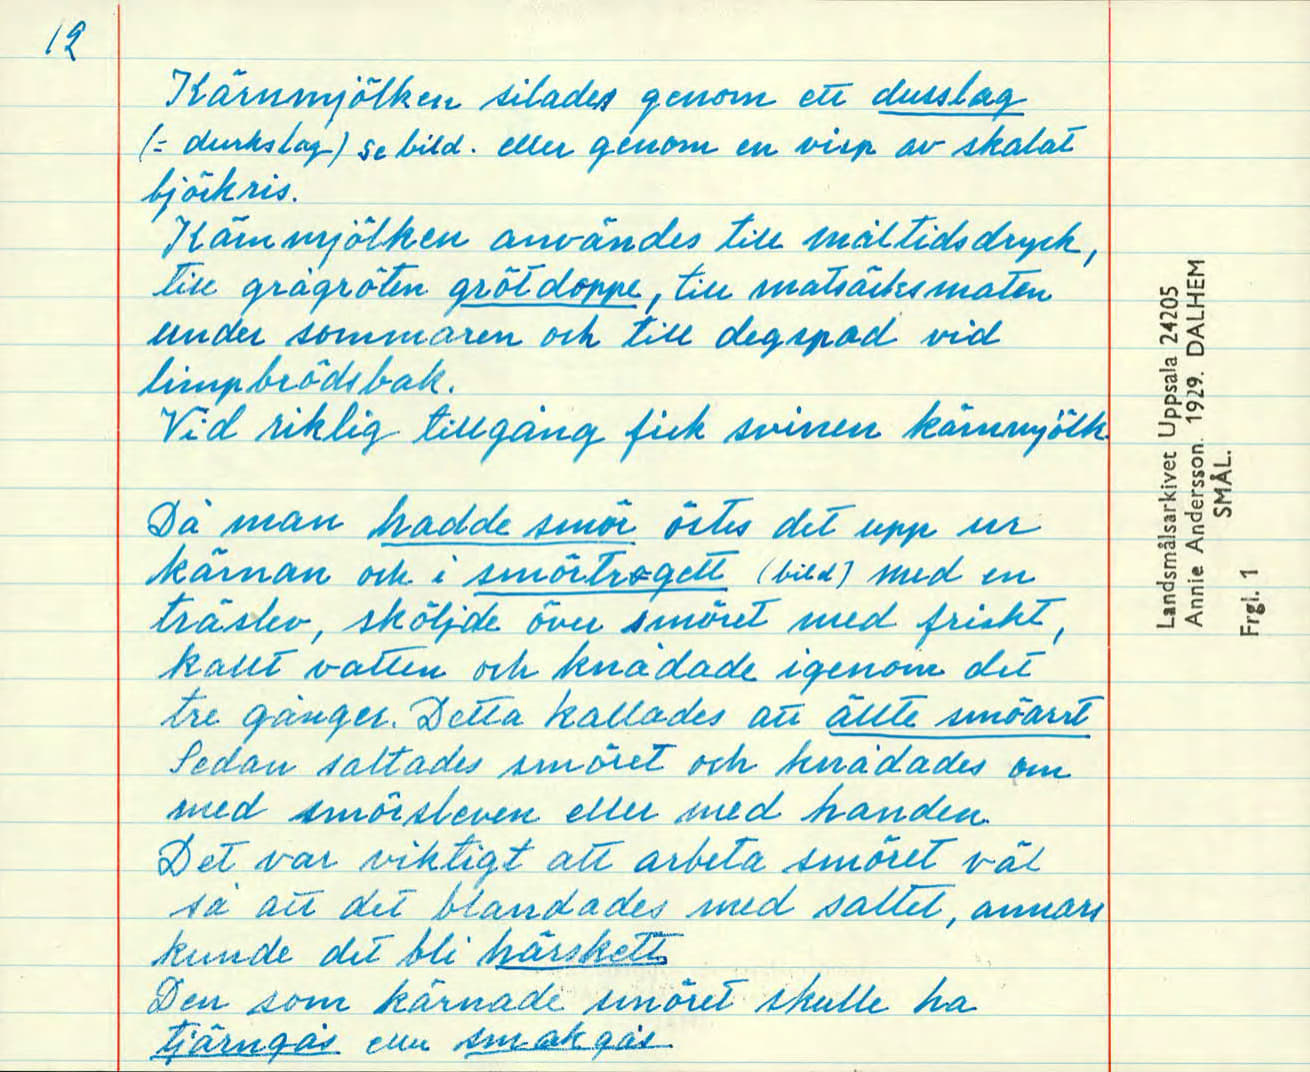 12
Kärnmjölken silades genom ett dusslag
(= durkslag) se bild. eller genom en visp av skalat
björkris.
Kärnmjölken användes till måltidsdryck,
till grågröten grötdoppe, till matsäcksmaten
under sommaren och till degspad vid
limpbrödsbak.
Vid riklig tillgång fick svinen kärnmjölk.
Då man hadde smör östes det upp ur
kärnan och i smörtrogett (bild) med en
träslev, sköljde över smöret med friskt,
kallt vatten och knådade igenom det
tre gånger. Detta kallades att ällte smöart
Sedan saltades smöret och knådades om
med smörsleven eller med handen.
Det var viktigt att arbeta smöret väl
så att det blandades med saltet, annars
kunde det bli härskett.
Den som kärnade smöret skulle ha
tjärngås eller smakgås.
Landsmålsarkivet Uppsala 24205
Annie Andersson. 1929. DALHEM
SMÅL.
Frgl. 1